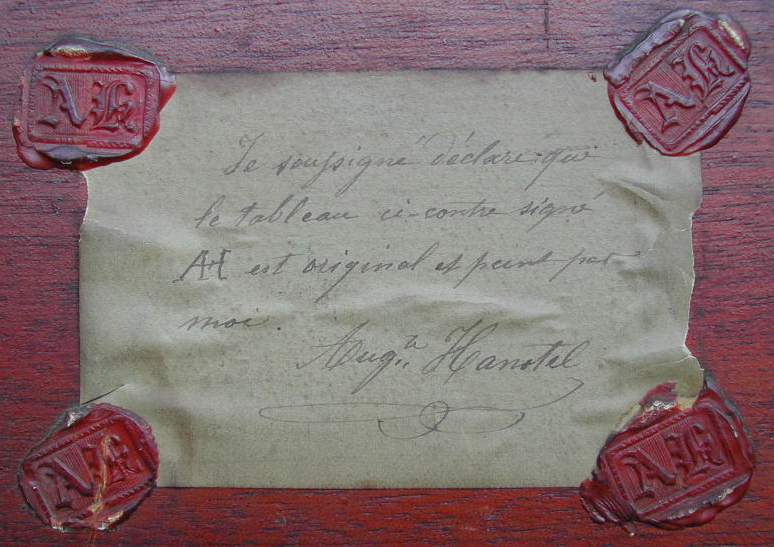 AH
AH
Je soussigné déclare que
le tableau ci-contre signé
AH est original et peint par
moi.
Augte Hanotel
AH
AH